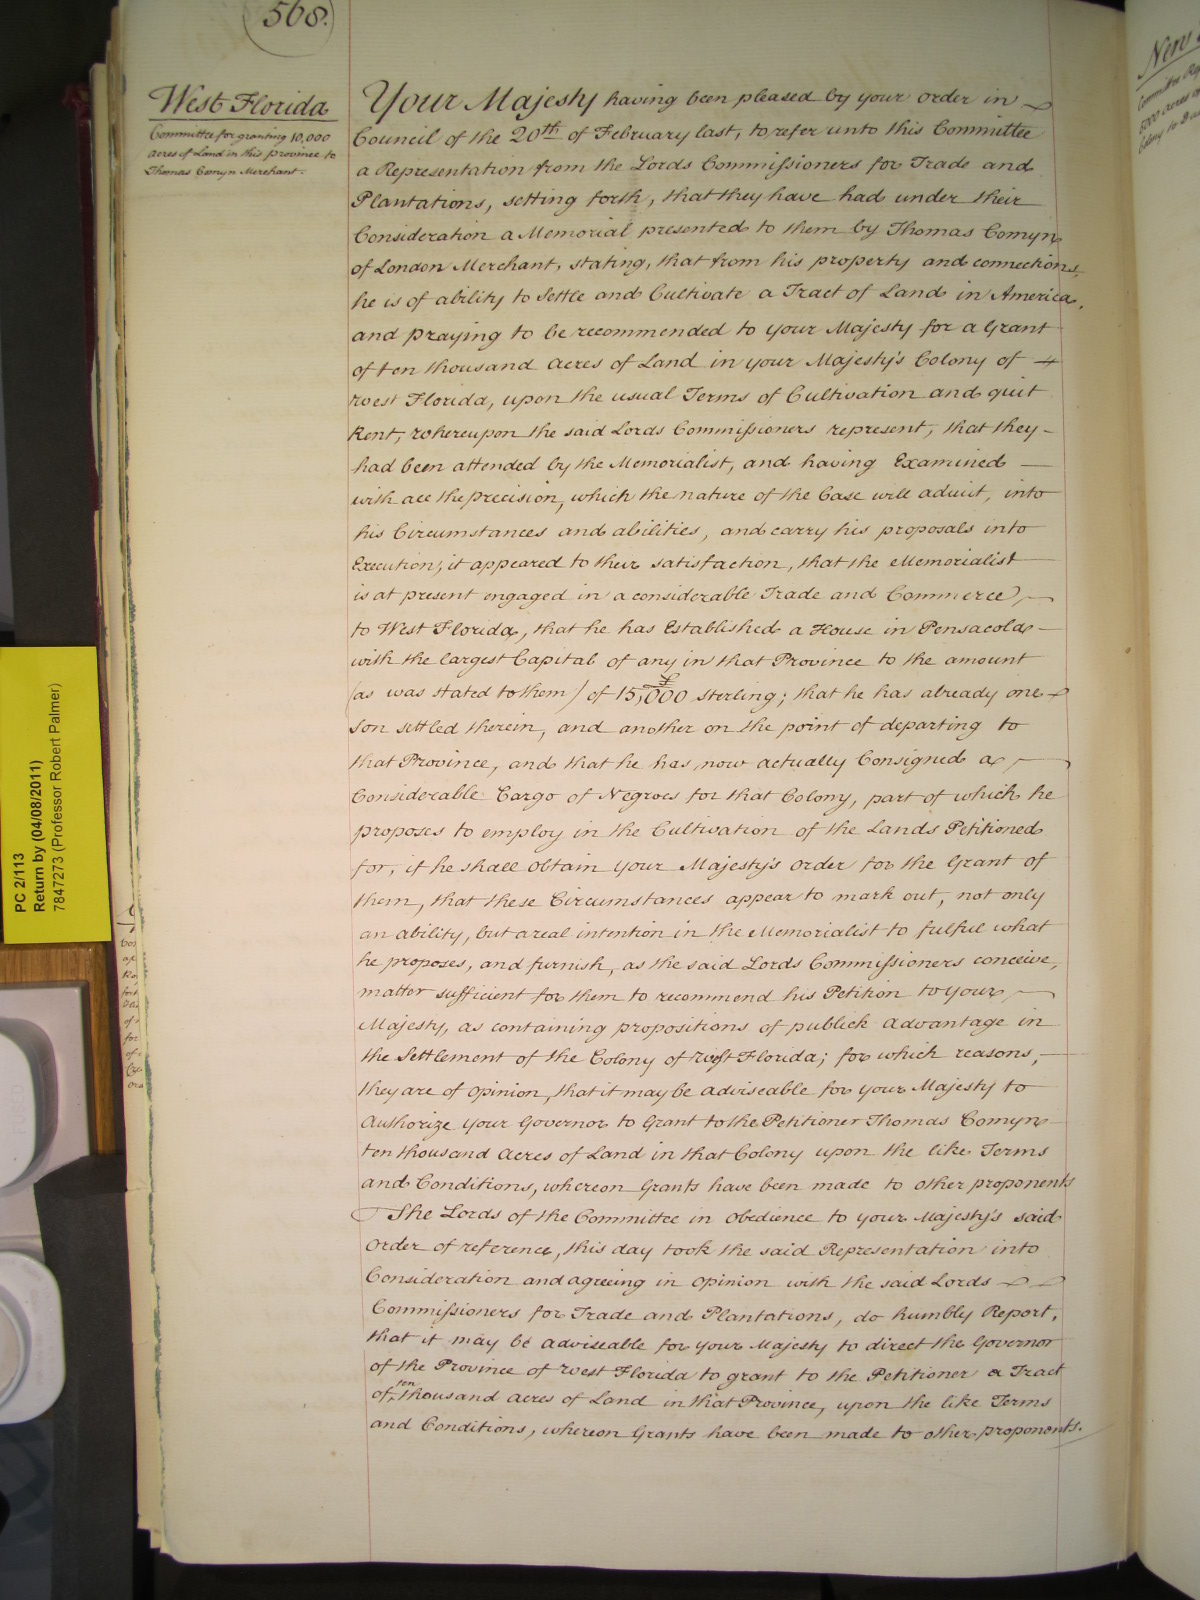 568.
West Florida
Committee for granting 10,000
acres of Land in this province to
Thomas Comyn Merchant.
Your Majesty having been pleased by your order in
Council of the 20th of February last, to refer unto this Committee
a Representation from the Lords Commissioners for Trade and
Plantations, setting forth, that they have had under their
Consideration a Memorial presented to them by Thomas Comyn
of London Merchant, stating, that from his property and connections,
he is of ability to Settle and Cultivate a Tract of Land in America,
and praying to be recommended to your Majesty for a Grant
of ten thousand Acres of Land in your Majesty's Colony of
West Florida, upon the usual Terms of Cultivation and quit
Rent, whereupon the said Lords Commissioners represent, that they
had been attended by the Memorialist, and having Examined
with all the precision, which the nature of the Case will admit, into
his Circumstances and abilities, and carry his proposals into
Execution, it appeared to their satisfaction, that the Memorialist
is at present engaged in a considerable Trade and Commerce,
to West Florida, that he has Established a House in Pensacola
with the largest Capital of any in that Province to the amount
(as was stated to them) of £15,000 sterling; that he has already one
Son settled therein, and another on the point of departing to
that Province, and that he has now actually Consigned a
Considerable Cargo of Negroes for that Colony, part of which he
proposes to employ in the Cultivation of the Lands Petitioned
for, if he shall Obtain your Majesty's Order for the Grant of
them, that these Circumstances appear to mark out, not only
an ability, but a real intention in the Memorialist to fulful what
he proposes, and furnish, as the said Lords Commissioners conceive,
matter sufficient for them to recommend his Petition to your
Majesty, as containing propositions of publick Advantage in
the Settlement of the Colony of West Florida; for which reasons,
they are of Opinion, that it may be adviseable for your Majesty to
Authorize your Governor to Grant to the Petitioner Thomas Comyn
ten thousand Acres of Land in that Colony upon the like Terms
and Conditions, whereon Grants have been made to other proponents
The Lords of the Committee in Obedience to your Majesty's said
Order of reference, this day took the said Representation into
Consideration and agreeing in Opinion with the said Lords
Commissioners for Trade and Plantations, do humbly Report,
that it may be Adviseable for your Majesty to direct the Governor
of the Province of West Florida to grant to the Petitioner a Tract
of ten thousand Acres of Land in that Province, upon the like Terms
and Conditions, whereon Grants have been made to other proponents.
PC 2/113
Return by (04/08/2011)
7847273 (Professor Robert Palmer)
New
5000 acres